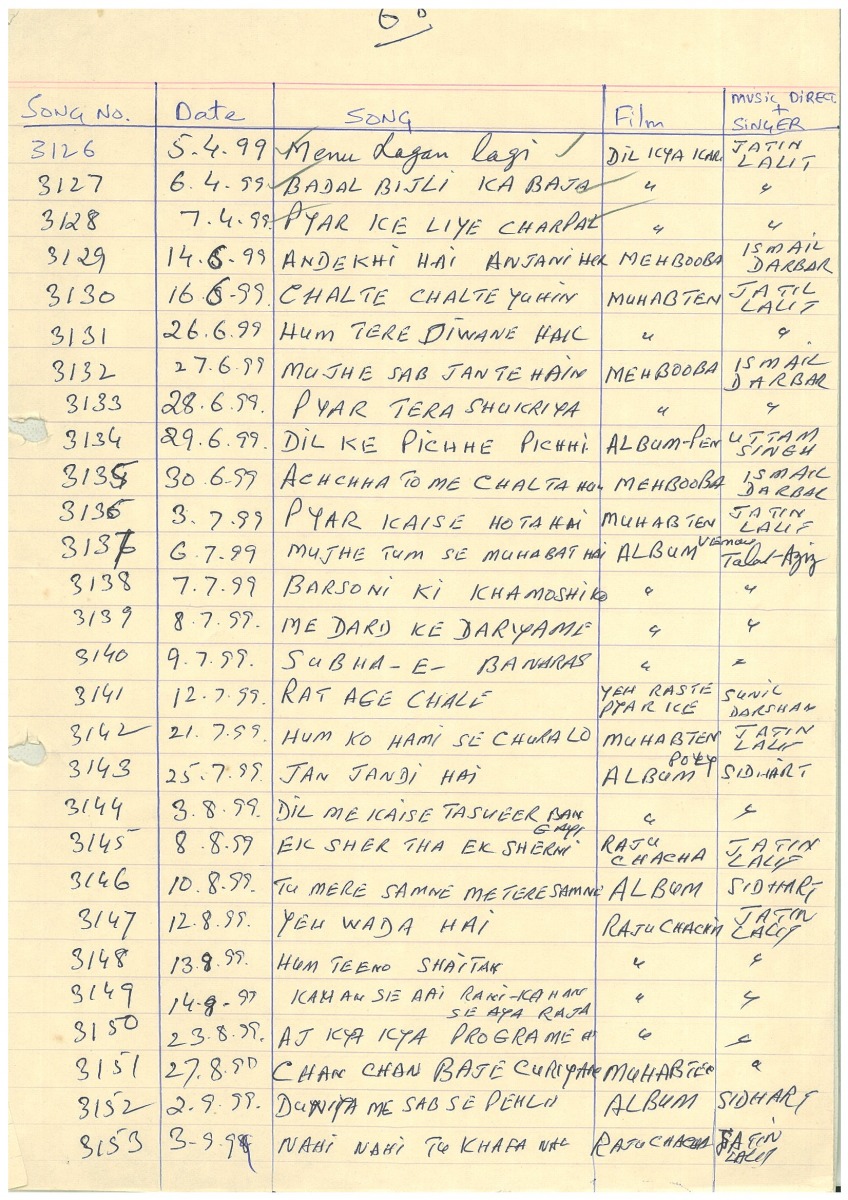 60
SONG NO. Date SONG Film MUSIC DIREC. + SINGER
3126 5.4.99 Menu Lagan lagi DIL KYA KAR JATIN LALIT
3127 6.4.99 BADAL BIJLI KA BAJA " "
3128 7.4.99 PYAR KE LIYE CHARPAL " "
3129 14.6.99 ANDEKHI HAI ANJANI HEK MEHBOOBA ISMAIL DARBAR
3130 16 6-99. CHALTE CHALTE YUHIN MUHABTEN JATIL LALIT
3131 26.6.99 HUM TERE DIWANE HAIL " "
3132 27.6.99 MUJHE SAB JANTE HAIN MEHBOOBA ISMAIL DARBAR
3133 28.6.99. PYAR TERA SHUKRIYA " "
3134 29.6.99. DIL KE PICHHE PICHHI. ALBUM-PEN UTTAM SINGH
3135 30.6-99 ACHCHHA TO ME CHALTA HU MEHBOOBA ISMAIL DARBAR
3136 3.7.99 PYAR KAISE HOTA HAI MUHABTEN JATIN LALIT
3137 6.7.99 MUJHE TUM SE MUHABAT HAI ALBUM VENOU Talat-Aziz
3138 7.7.99 BARSONI KI KHAMOSHI KO " "
3139 8.7.99. ME DARD KE DARYAME " "
3140 9.7.99. SUBHA-E- BANARAS " "
3141 12.7.99. RAT AGE CHALE YEH RASTE PYAR KE SUNIL DARSHAN
3142 21.7.99. HUM KO HAMI SE CHURA LO MUHABTEN JATIN LALIT
3143 25.7.99. JAN JANDI HAI ALBUM POLY SIDHART
3144 3.8.99. DIL ME KAISE TASVEER BAN GAYI " "
3145 8.8.99 EK SHER THA EK SHERNI RAJU CHACHA JATIN LALIT
3146 10.8.99. TU MERE SAMNE METERE SAMNE ALBUM SIDHART
3147 12.8.99. YEH WADA HAI RAJU CHACHA JATIN LALIT
3148 13.8.99. HUM TEENO SHAITAN " "
3149 14-8-99 KAHAN SE AAI RANI-KAHAN SE AYA RAJA " "
3150 23.8.99. AJ KYA KYA PROGRAME H " "
3151 27.8.90 CHAN CHAN BAJE CURIYAN MUHABTEN "
3152 2.9.99. DUNIYA ME SAB SE PEHLU ALBUM SIDHART
3153 3-9.99 NAHI NAHI TU KHAFA NAL RAJU CHACHA JATIN LALIT